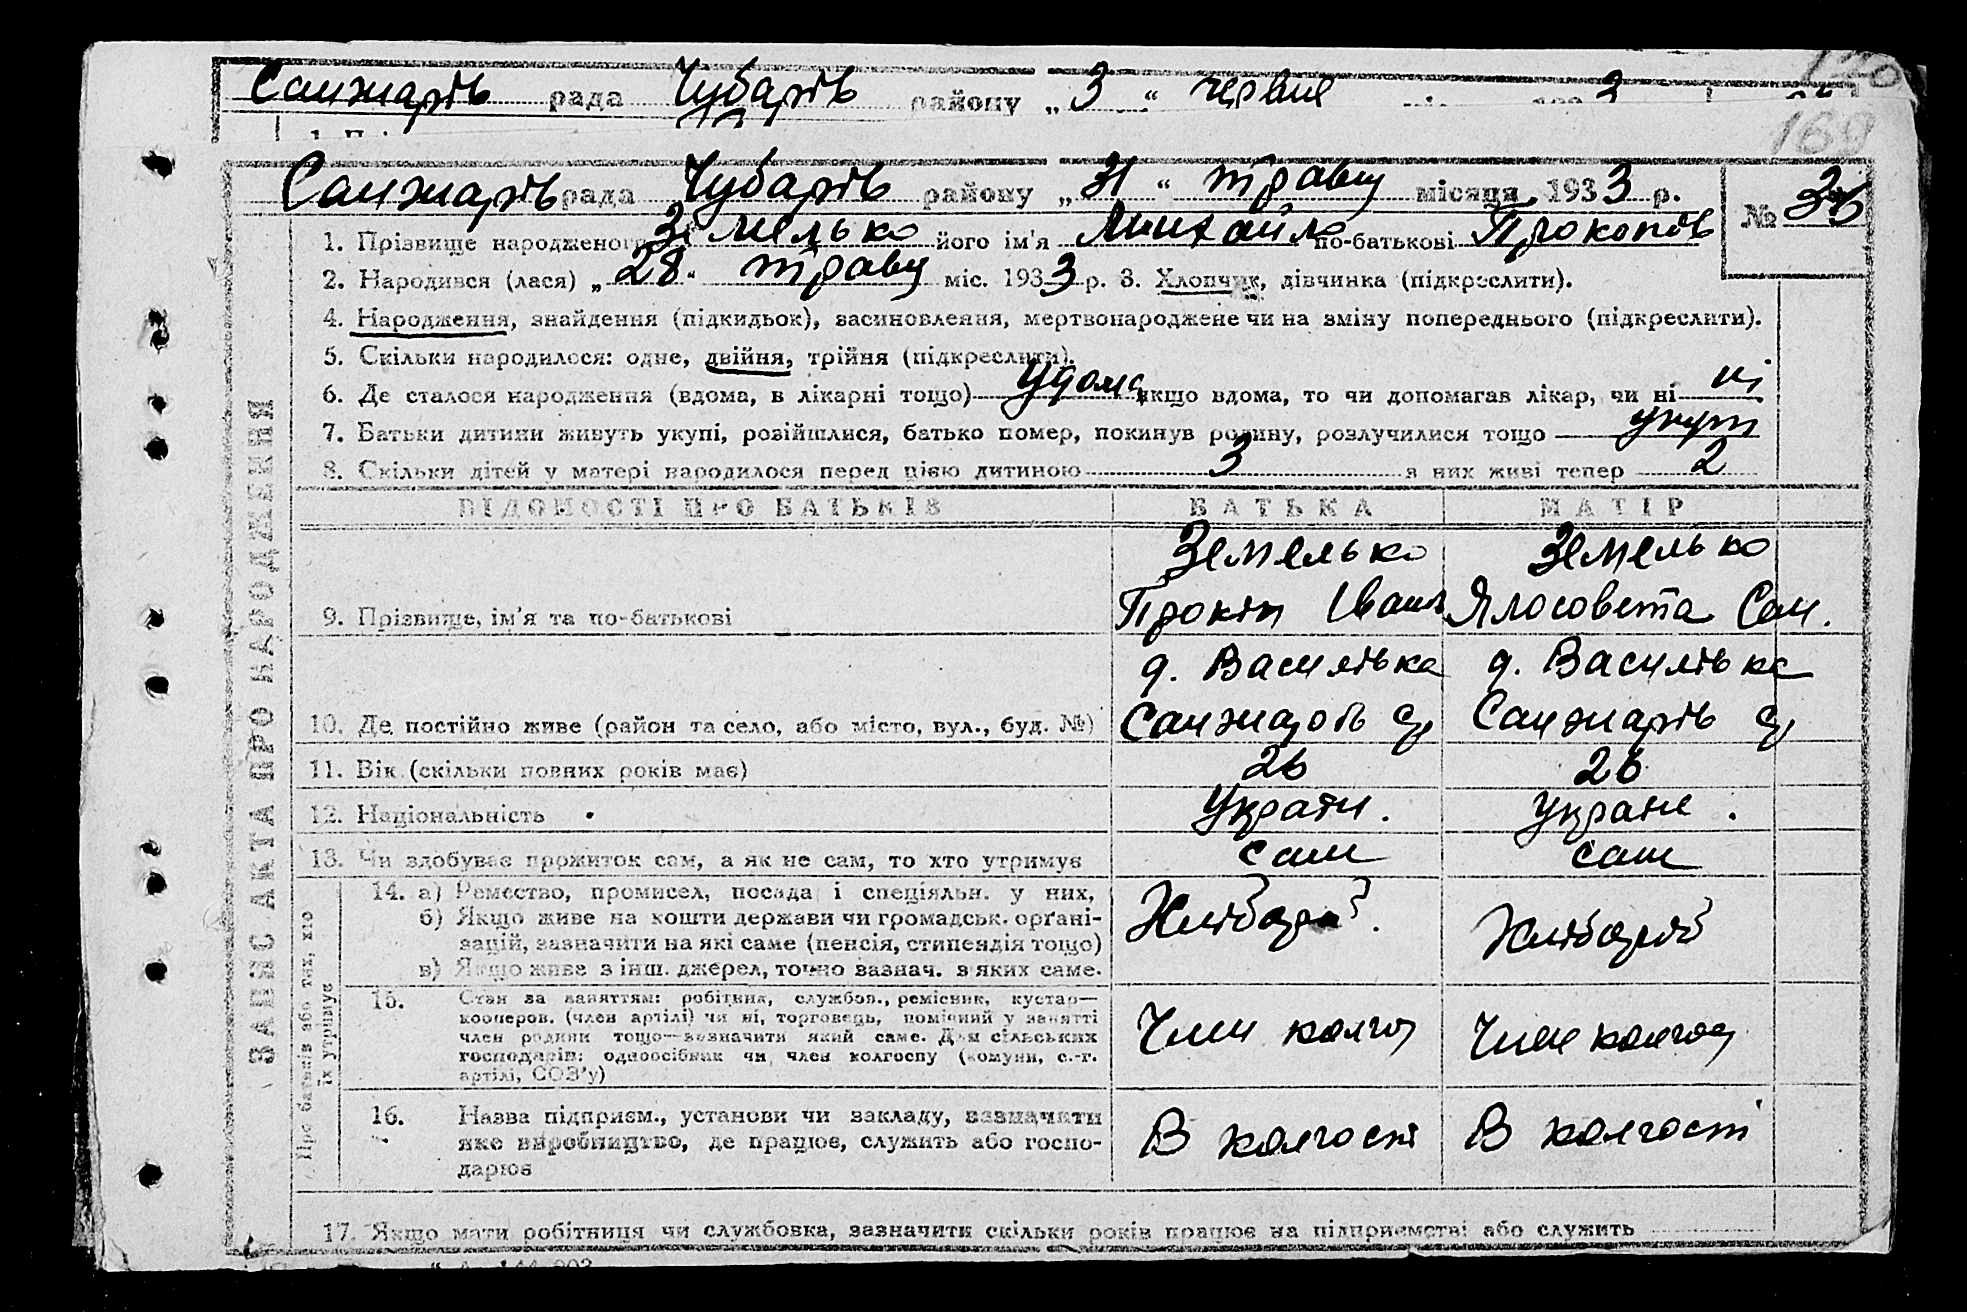 Санжарів рада Чубарів району „ 3 “ червня
169
Санжарів рада Чубарів району „ 31 “ травня місяця 1933 р. №
1. Прізвище народженого Земелько його ім'я Михайло по-батькові Прокопів
2. Народився (лася) „ 28 “ травня міс. 1933 р. 3. Хлопчик, дівчинка (підкреслити).
4. Народження, знайдення (підкидьок), засиновлення, мертвонароджене чи на зміну попереднього (підкреслити).
5. Скільки народилося: одне, двійня, трійня (підкреслити).
6. Де сталося народження (вдома, в лікарні тощо) Удома якщо вдома, то чи допомагав лікар, чи ні ні
7. Батьки дитини живуть укупі, розійшлися, батько помер, покинув родину, розлучилися тощо укупі
8. Скільки дітей у матері народилося перед цією дитиною 3 з них живі тепер 2
ВІДОМОСТІ ПРО БАТЬКІВ БАТЬКА МАТІР
Земелько Земелько
9. Прізвище, ім'я та по-батькові Прокіп Іванів Ялосовета Сам.
д. Василівка д. Василівка
10. Де постійно живе (район та село, або місто, вул., буд. №) Санжарів Санжарів
11. Вік (скільки повних років має) 26 26
12. Національність Україн. Україн.
13. Чи здобуває прожиток сам, а як не сам, то хто утримує сам сам
14. а) Ремество, промисел, посада і спеціяльн. у них, Хлібороб Хлібороб
б) Якщо живе на кошти держави чи громадськ. органі-
зацій, зазначити на які саме (пенсія, стипендія тощо)
в) Якщо живе з інш. джерел, точно зазнач. з яких саме.
15. Стан за заняттям: робітник, службов., ремісник, кустар—
кооперов. (член артілі) чи ні, торговець, помічний у занятті
член родини тощо—зазначити який саме. Для сільських
господарів: одноосібник чи член колгоспу (комуни, с.-г.
артілі, СОЗ'у)
Член колгос Член колгос
16. Назва підприєм., установи чи закладу, зазначити
яке виробництво, де працює, служить або госпо-
дарює
В колгоспі В колгоспі
17. Якщо мати робітниця чи службовка, зазначити скільки років працює на підприємстві або служить
ЗАПИС АКТА ПРО НАРОДЖЕННЯ
Про батьків або тих, хто
їх утримує